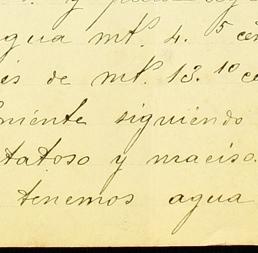 y
agua mt. 4. 5 cen
es de mt. 13. 10 ce
niente siguiendo
tatoso y maciso.
tenemos agua